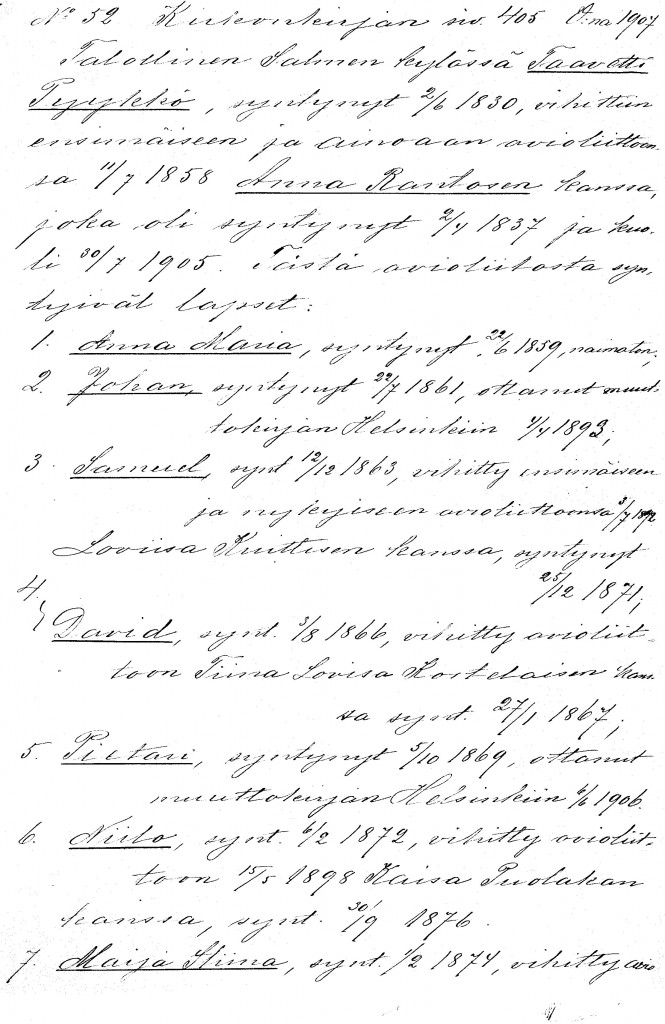 No 52 Kirkonkirjan siv. 405 O:na 1907
Talollinen Salmen kylässä Taavetti
Pyykkö, syntynyt 2/6 1830, vihittiin
ensimäiseen ja ainoaan avioliittoon-
sa 11/7 1858 Anna Rantosen kanssa,
joka oli syntynyt 2/4 1837 ja kuo-
li 30/7 1905. Tästä avioliitosta syn-
tyivät lapset:
1. Anna Maria, syntynyt 22/6 1859, naimaton;
2. Johan, syntynyt 22/7 1861, ottanut muut-
tokirjan Helsinkiin 4/4 1893;
3. Samuel, synt 12/12 1863, vihitty ensimäiseen
ja nykyiseen avioliittoonsa 3/7 1892
Loviisa Kuittisen kanssa, syntynyt
25/12 1871;
4.
David, synt. 3/8 1866, vihitty avioliit-
toon Tiina Lovisa Kostelaisen kans-
sa synt. 27/1 1867;
5. Pietari, syntynyt 5/10 1869, ottanut
muuttokirjan Helsinkiin 6/6 1906.
6. Niilo, synt. 6/2 1872, vihitty avioliit-
toon 15/5 1898 Kaisa Puolakan
kanssa, synt. 30/9 1876.
7. Maija Stiina, synt. 1/2 1874, vihitty avio